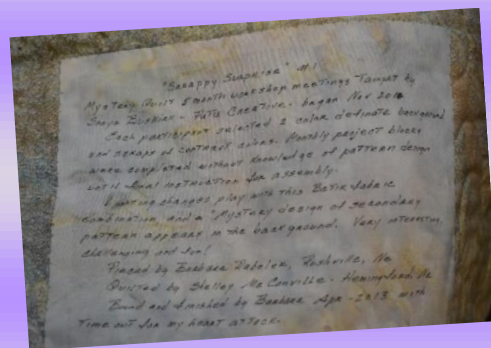 "Scrappy Surprise" #1
Mystery Quilt 5 month workshop meetings Taught by
Creative - began Nov 2012
Each participant selected 2 color definate background
and scraps of contrast colors. Monthly project blocks
were completed without knowledge of pattern design
until final instruction for assembly.
Lighting changes play with this Batik fabric
combination and a "Mystery design of secondary
pattern appears in the background. Very interesting,
challenging and fun!
Pieced by Barbara Rushville, Ne
Quilted by Shelley McConville - Hemingford, Ne
Bound and finished by Barbara Apr - 2013 with
Time out for my heart attack.